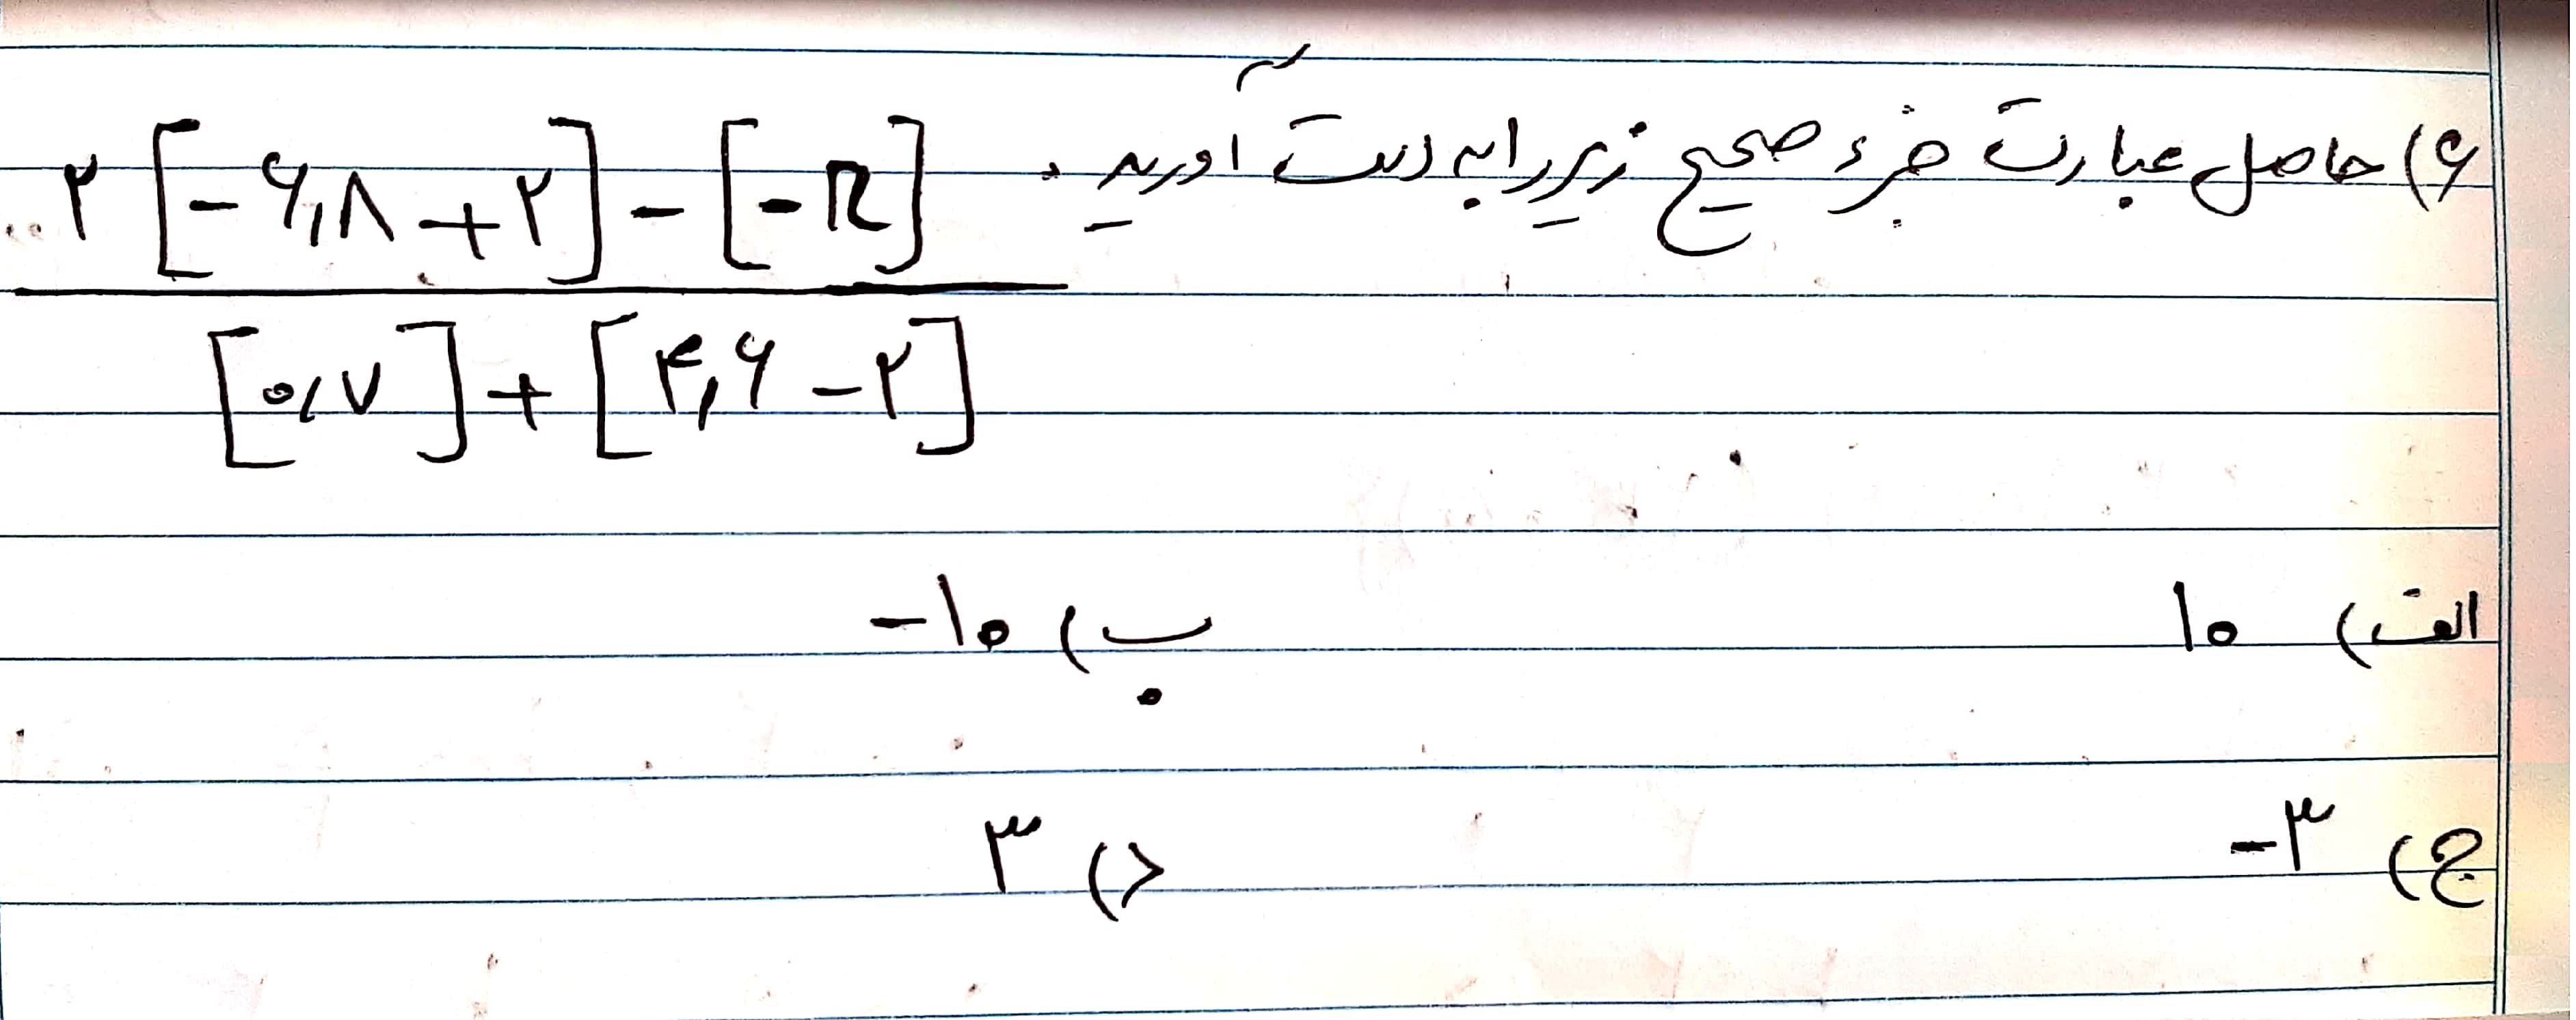 ۶) حاصل عبارت جزء صحیح زیر را به دست آورید.
۲[-۶,۸+۲]-[-π]
[۰,۷]+[۴,۶-۲]
الف) ۱۰
ب) -۱۰
ج) -۳
د) ۳